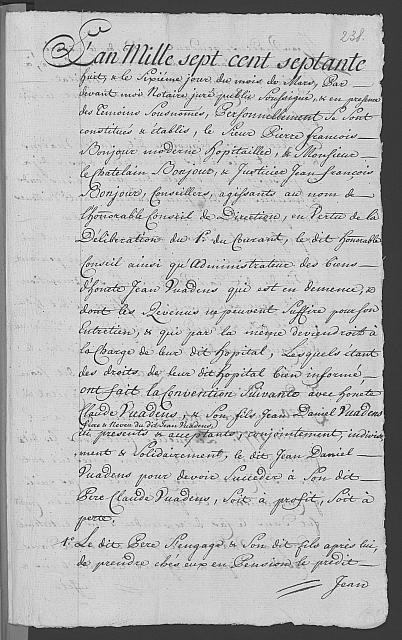 238.
L'an Mille sept cent septante
huit, & le Sixiéme jour du mois de Mars, Par
devant moi Notaire juré public Soussigné, & en presence
des Temoins Sousnomés, Personnellement Se Sont
constitués & établis, le Sieur Pierre françois
Bonjour moderne hopitaillier, & Monsieur
le Chatelain Bonjour, & Justicier Jean françois
Bonjour, Conseillers, agissants au nom de
l'honorable Conseil de Direction, en Vertu de la
Déliberation du 1r. du Courant, le dit honorable
Conseil ainsi qu'Administrateur des biens
d'honéte Jean Vuadens qui est en demence, &
dont les Revenus ne peuvent Suffire pour son
Entretien, & qui par la même deviendroit à
la Charge de leur dit hopital, Lesquels étant
des droits de leur dit hopital bien informé
ont fait la Convention Suivante avec honéte
Claude Vuadens, & Son fils Jean Daniel Vuadens
frère & Neveu du dit Jean Vuadens,
ici presents & acceptants, conjointement, indivise-
ment & Solidairement, le dit Jean Daniel
Vuadens pour devoir Succeder à Son dit
Pere Claude Vuadens, Soit à profit, Soit à
perte.
1o. Le dit Pere S'engage & Son dit fils après lui,
de prendre chés eux en Pension le predit
Jean